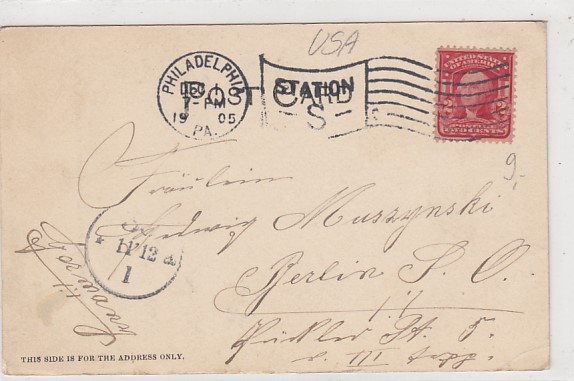 USA
PHILADELPHIA
DEC
7-PM
19 05
PA.
POST CARD
STATION
S
UNITED STATES
OF AMERICA
2 2
POSTAGE
TWO CENTS
9.-
Fräulein
Hedwig Muszynski
Berlin S. O.
Pückler St. 5.
v. III Trpp.
11/12 a
1
Germany
THIS SIDE IS FOR THE ADDRESS ONLY.